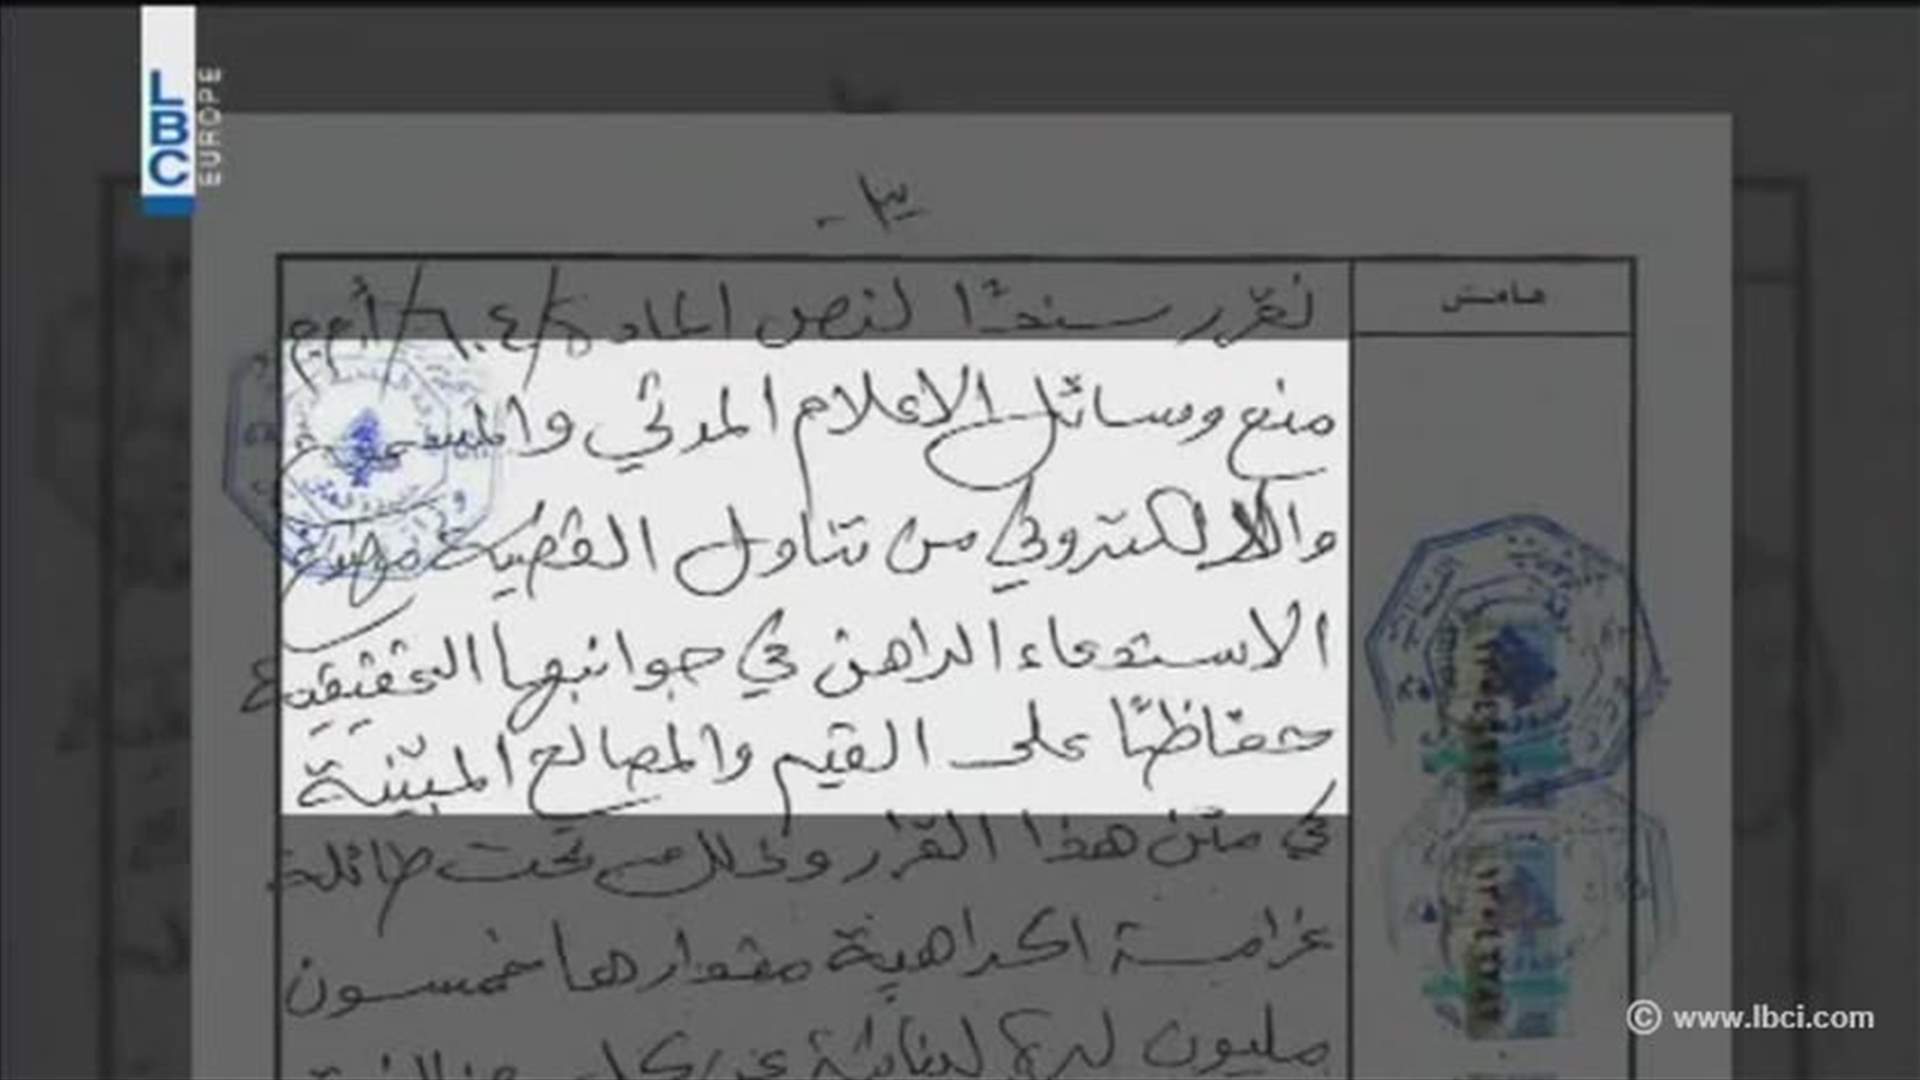 LBC
EUROPE
- ٣ -
هامش
نقرّر سنداً لنص المادة /٦٠٤/ أ.م.م
منع وسائل الاعلام المرئي والمسموع
والالكتروني من تناول القضية موضوع
الاستدعاء الراهن في جوانبها التحقيقية
حفاظاً على القيم والمصالح المبيّنة
في متن هذا القرار وذلك تحت طائلة
غرامة اكراهية مقدارها خمسون
مليون ليرة لبنانية عن كل
© www.lbci.com